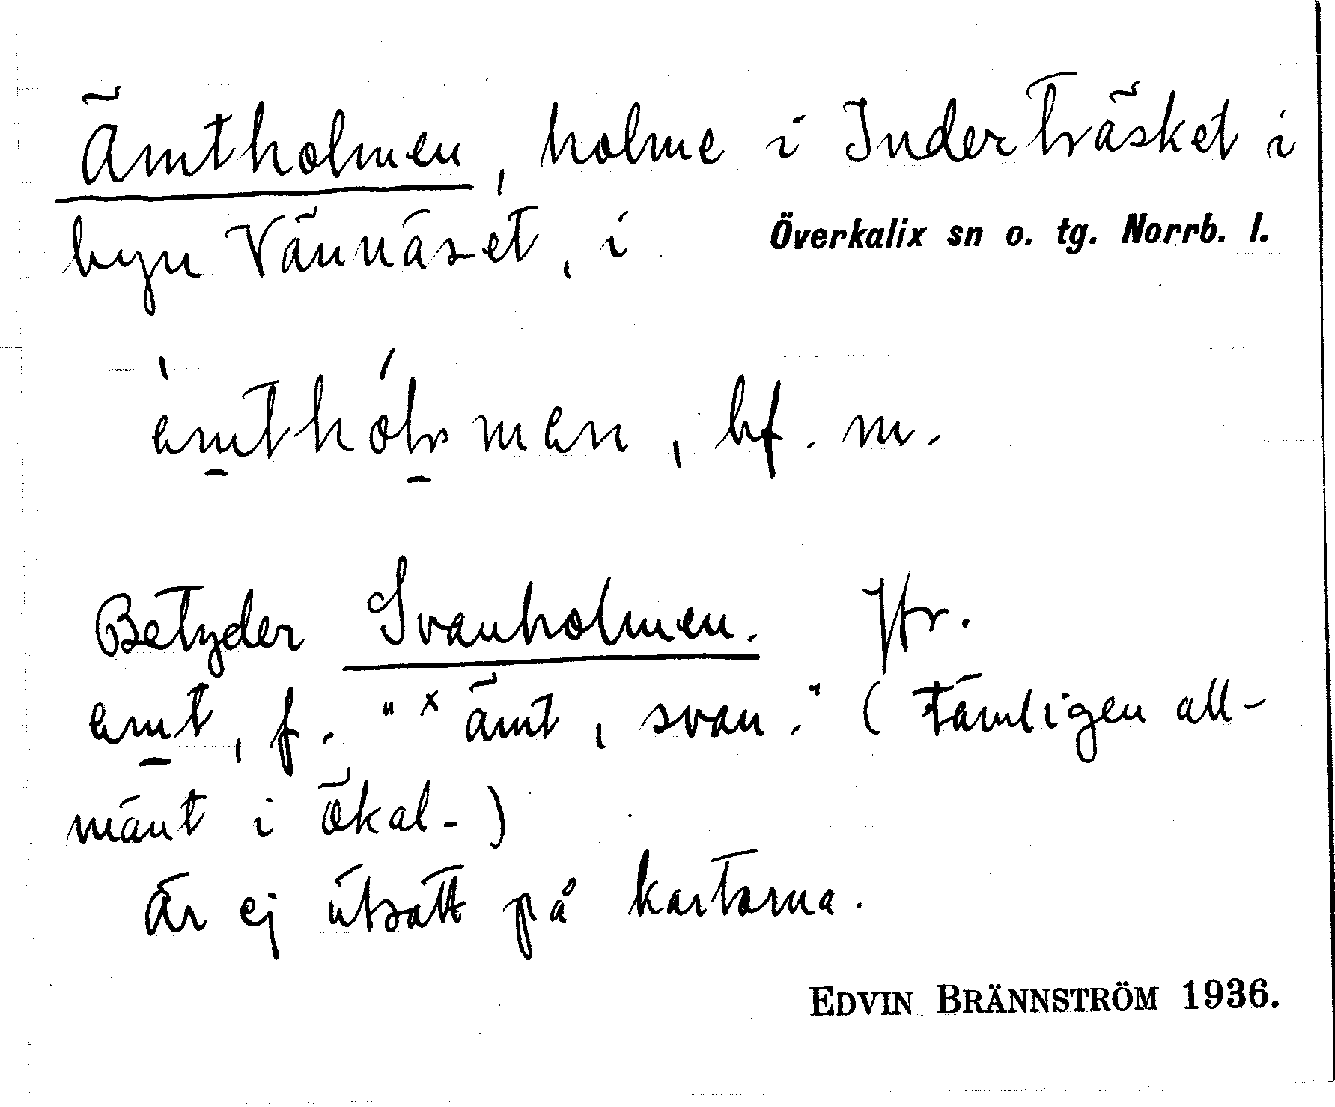 Ämtholmen, holme i Inderträsket i
byn Vännäset, i Överkalix sn o. tg. Norrb. l.
, bf. m.
Betyder Svanholmen. Jfr.
amt, f. "ˣämt, svan." (tämligen all-
mänt i Ökal-)
Är ej utsatt på kartorna.
EDVIN BRÄNNSTRÖM 1936.